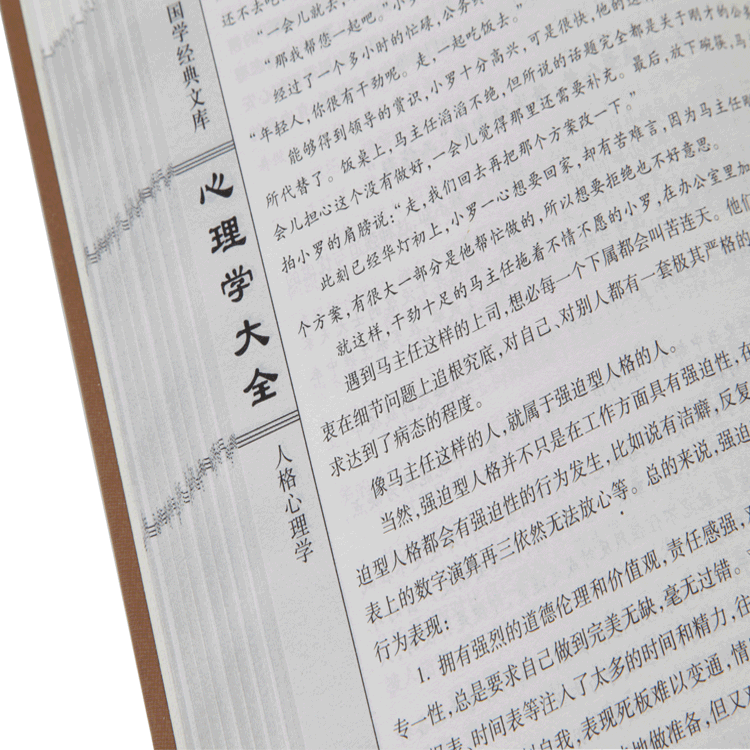 国学经典文库
心理学大全
人格心理学
还不去吃
“一会儿就去，
“那我帮您一起吧。”小罗
经过了一个多小时的忙碌，公务
“年轻人，你很有干劲呢。走，一起吃饭去。”
能够得到领导的赏识，小罗十分高兴，可是很快，他的
所代替了。饭桌上，马主任滔滔不绝，但所说的话题完全都是关于刚才的公
会儿担心这个没有做好，一会儿觉得那里还需要补充。最后，放下碗筷，马
拍小罗的肩膀说：“走，我们回去再把那个方案改一下。”
此刻已经华灯初上，小罗一心想要回家，却有苦难言，因为马主任
个方案，有很大一部分是他帮忙做的，所以想要拒绝也不好意思。
就这样，干劲十足的马主任拖着不情不愿的小罗，在办公室里加
遇到马主任这样的上司，想必每一个下属都会叫苦连天。他们
衷在细节问题上追根究底，对自己、对别人都有一套极其严格的
求达到了病态的程度。
像马主任这样的人，就属于强迫型人格的人。
当然，强迫型人格并不只是在工作方面具有强迫性，在
迫型人格都会有强迫性的行为发生，比如说有洁癖，反复
表上的数字演算再三依然无法放心等。总的来说，强迫
行为表现：
1. 拥有强烈的道德伦理和价值观，责任感强，
专一性，总是要求自己做到完美无缺，毫无过错。
表、时间表等注入了太多的时间和精力，往
自我，表现死板难以变通，情
做准备，但又